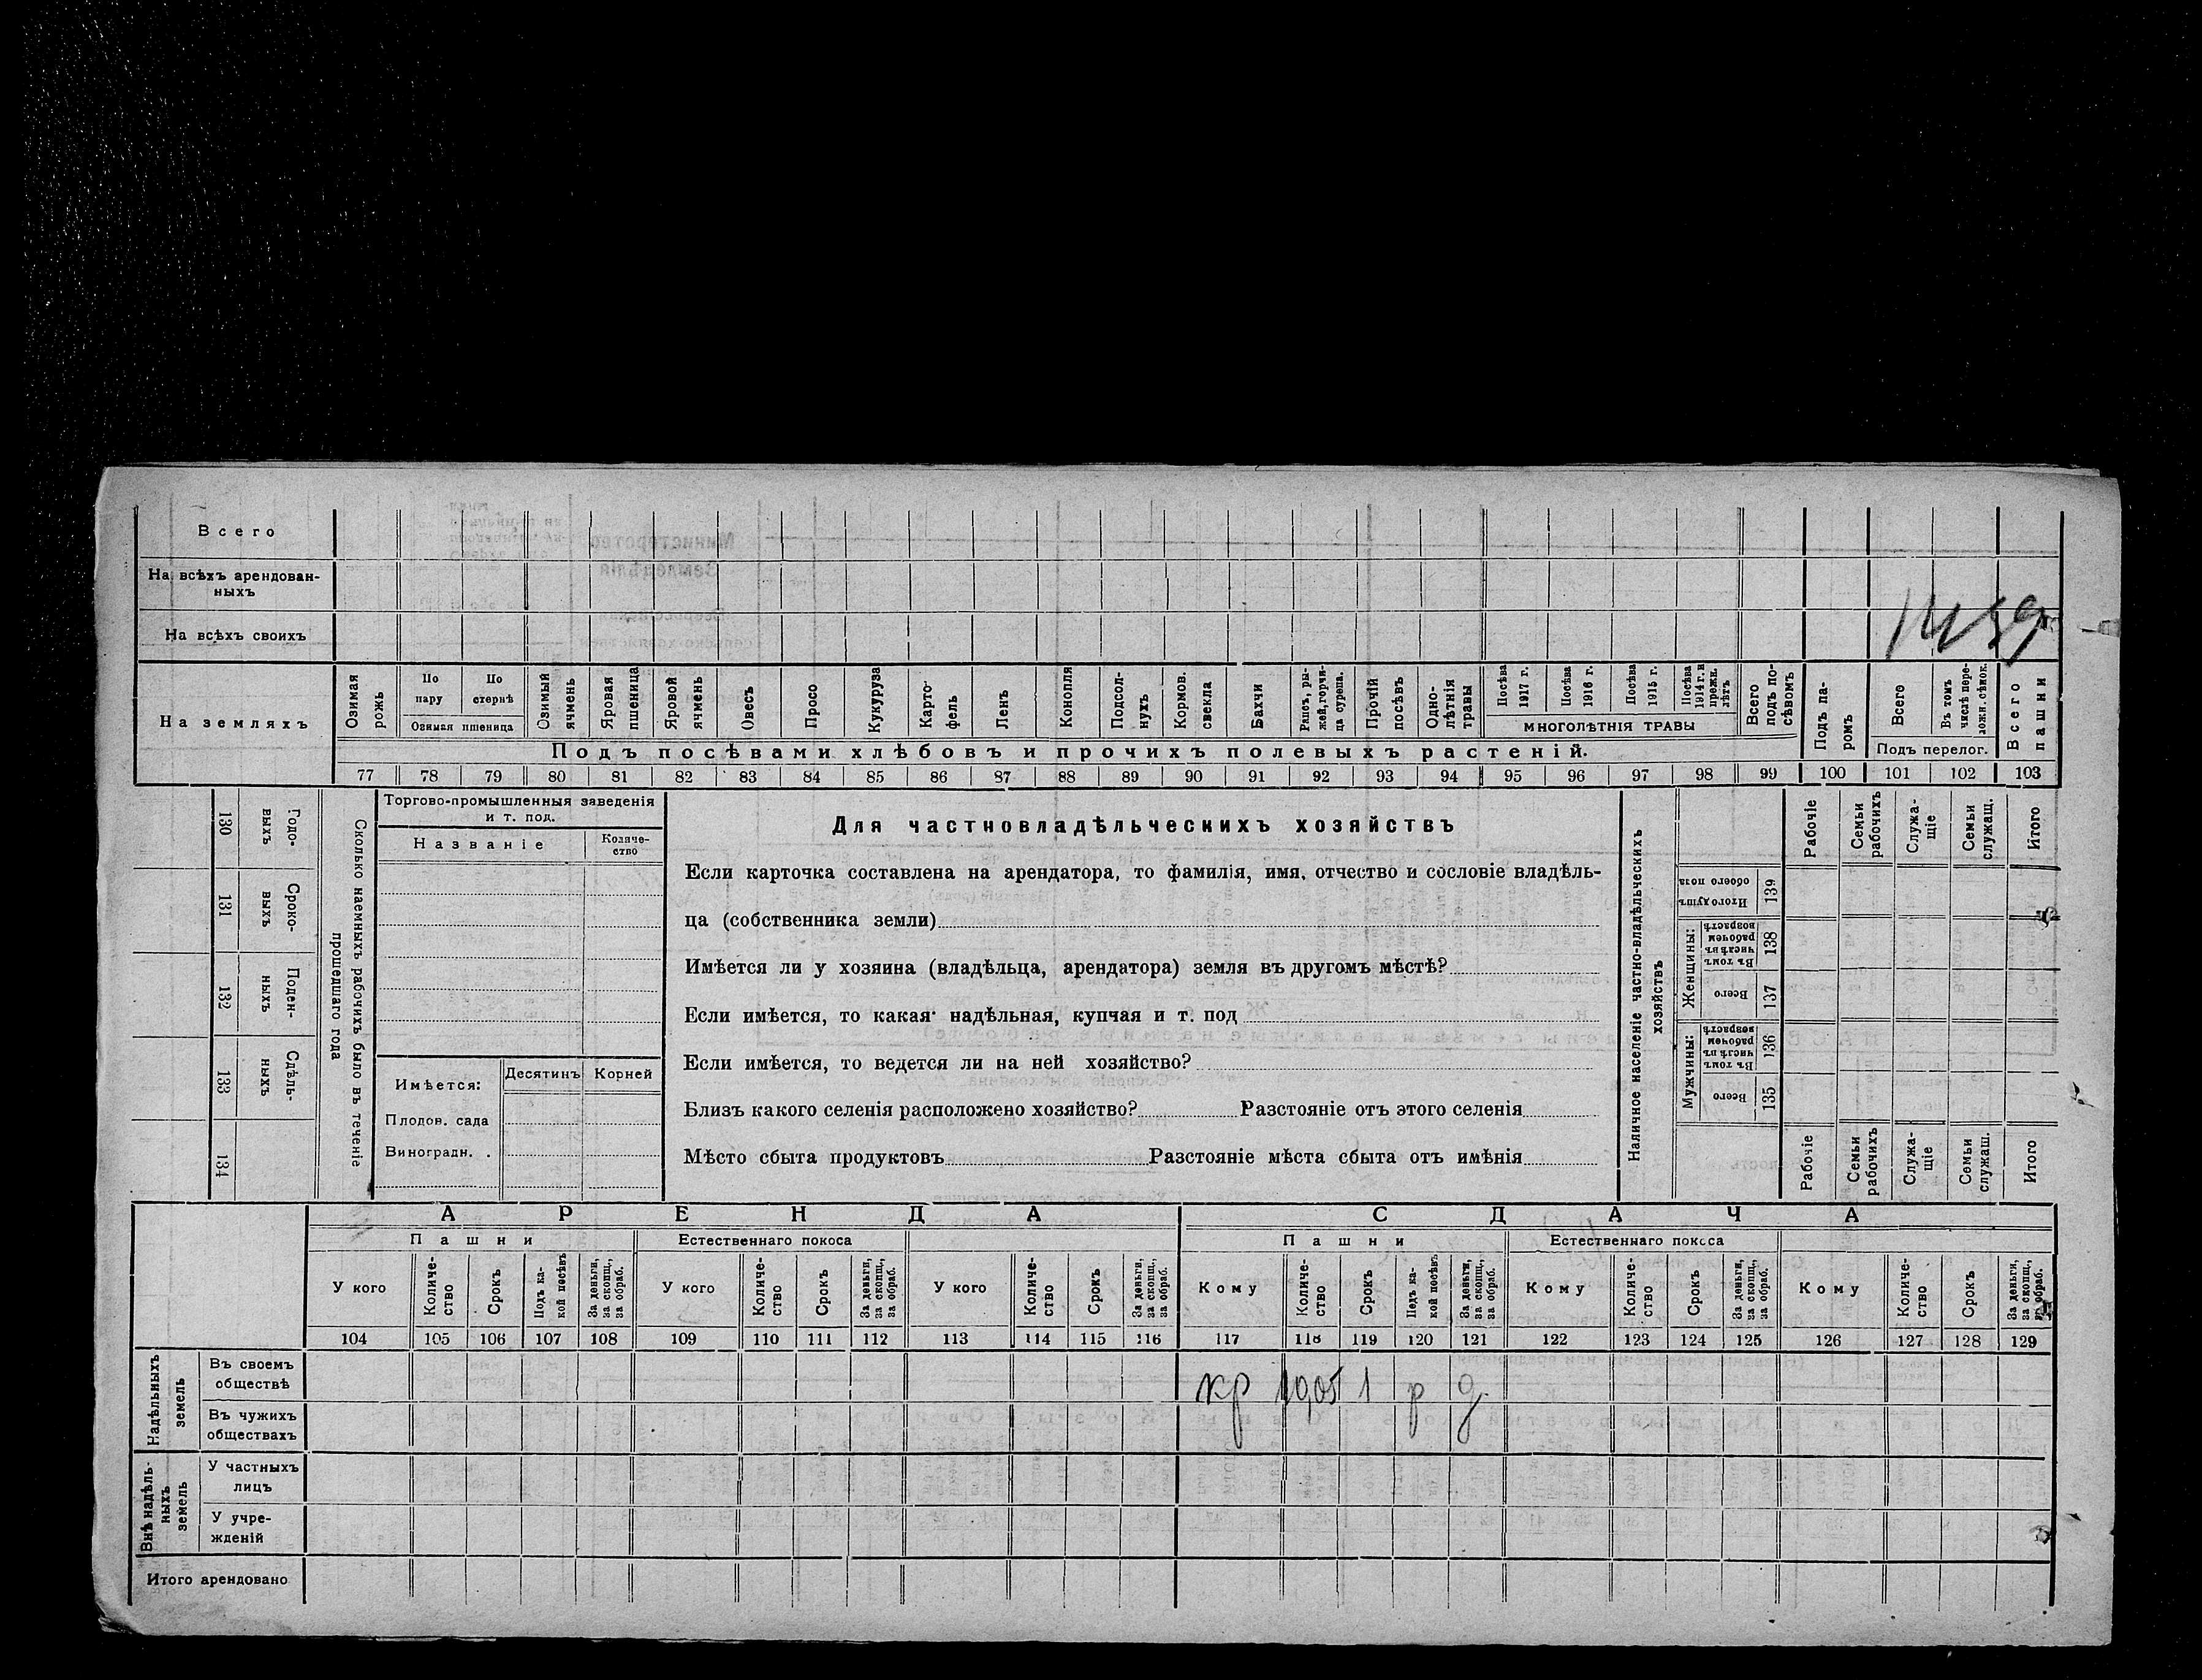 Всего
На всѣхъ арендован-
ныхъ
На всѣхъ своихъ
1459
На земляхъ
Озимая рожь
По пару
По стернѣ
Озимая пшеница
Озимый ячмень
Яровая пшеница
Яровой ячмень
Овесъ
Просо
Кукуруза
Карто-
фель
Ленъ
Конопля
Подсол-
нухъ
Кормов. свекла
Бахчи
Рапсъ, ры-
жей, горчи-
ца сурепа.
Прочій посѣвъ
Одно-
лѣтнія травы
Посѣва 1917 г.
Посѣва 1916 г.
Посѣва 1915 г.
Посѣва 1914 г. и прежн. лѣтъ
МНОГОЛѢТНІЯ ТРАВЫ
Всего подъ по-
сѣвомъ
Подъ па-
ромъ
Всего
Въ томъ числѣ пере-
ложн. сѣнок.
Подъ перелог.
Всего пашни
Подъ посѣвами хлѣбовъ и прочихъ полевыхъ растеній.
77 78 79 80 81 82 83 84 85 86 87 88 89 90 91 92 93 94 95 96 97 98 99 100 101 102 103
130 Годо-
выхъ
131 Сроко-
выхъ
132 Поден-
ныхъ
133 Сдѣль-
ныхъ
134
Сколько наемныхъ рабочихъ было въ теченіе
прошедшаго года
Торгово-промышленныя заведенія
и т. под.
Названіе
Количе-
ство
Имѣется:
Десятинъ
Корней
Плодов. сада
Виноградн. .
Для частновладѣльческихъ хозяйствъ
Если карточка составлена на арендатора, то фамилія, имя, отчество и сословіе владѣль-
ца (собственника земли)
Имѣется ли у хозяина (владѣльца, арендатора) земля въ другомъ мѣстѣ?
Если имѣется, то какая: надѣльная, купчая и т. под
Если имѣется, то ведется ли на ней хозяйство?
Близъ какого селенія расположено хозяйство? Разстояніе отъ этого селенія
Мѣсто сбыта продуктовъ Разстояніе мѣста сбыта отъ имѣнія
Наличное населеніе частно-владѣльческихъ
хозяйствъ
Рабочіе
Семьи рабочихъ
Служа-
щіе
Семьи служащ.
Итого
Итого душъ обоего пола 139
Женщины:
Въ томъ числѣ въ рабочем возрастѣ 138
Всего 137
Мужчины:
Въ томъ числѣ въ рабочем возрастѣ 136
Всего 135
Рабочіе
Семьи рабочихъ
Служа-
щіе
Семьи служащ.
Итого
АРЕНДА
СДАЧА
Пашни
Естественнаго покоса
Пашни
Естественнаго покоса
У кого
Количе-
ство
Срокъ
Подъ ка-
кой посѣвъ
За деньги, за скопщ., за обраб.
У кого
Количе-
ство
Срокъ
За деньги, за скопщ., за обраб.
У кого
Количе-
ство
Срокъ
За деньги, за скопщ., за обраб.
Кому
Количе-
ство
Срокъ
Подъ ка-
кой посѣвъ
За деньги, за скопщ., за обраб.
Кому
Количе-
ство
Срокъ
За деньги, за скопщ., за обраб.
Кому
Количе-
ство
Срокъ
За деньги, за скопщ., за обраб.
104 105 106 107 108 109 110 111 112 113 114 115 116 117 118 119 120 121 122 123 124 125 126 127 128 129
Надѣльныхъ земель
Въ своемъ
обществѣ
кр 10,05 1 р д.
Въ чужихъ
обществахъ
Внѣ надѣль-
ныхъ земель
У частныхъ
лицъ
У учре-
жденій
Итого арендовано